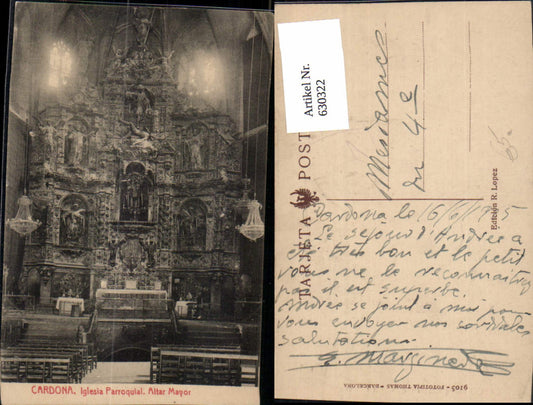 CARDONA. Iglesia Parroquial. Altar Mayor
Artikel Nr.
630322
TARJETA POST
Mesdames
du 4e
65.
Cardona le 16/6/1925
Le séjour d'Andrée a
été très bon et le petit
vous ne le reconnaîtrez
pas il est superbe.
Andrée se joint à moi pour
vous envoyer nos cordiales
salutations.
Edición R. Lopez
9103 - FOTOTIPIA THOMAS - BARCELONA